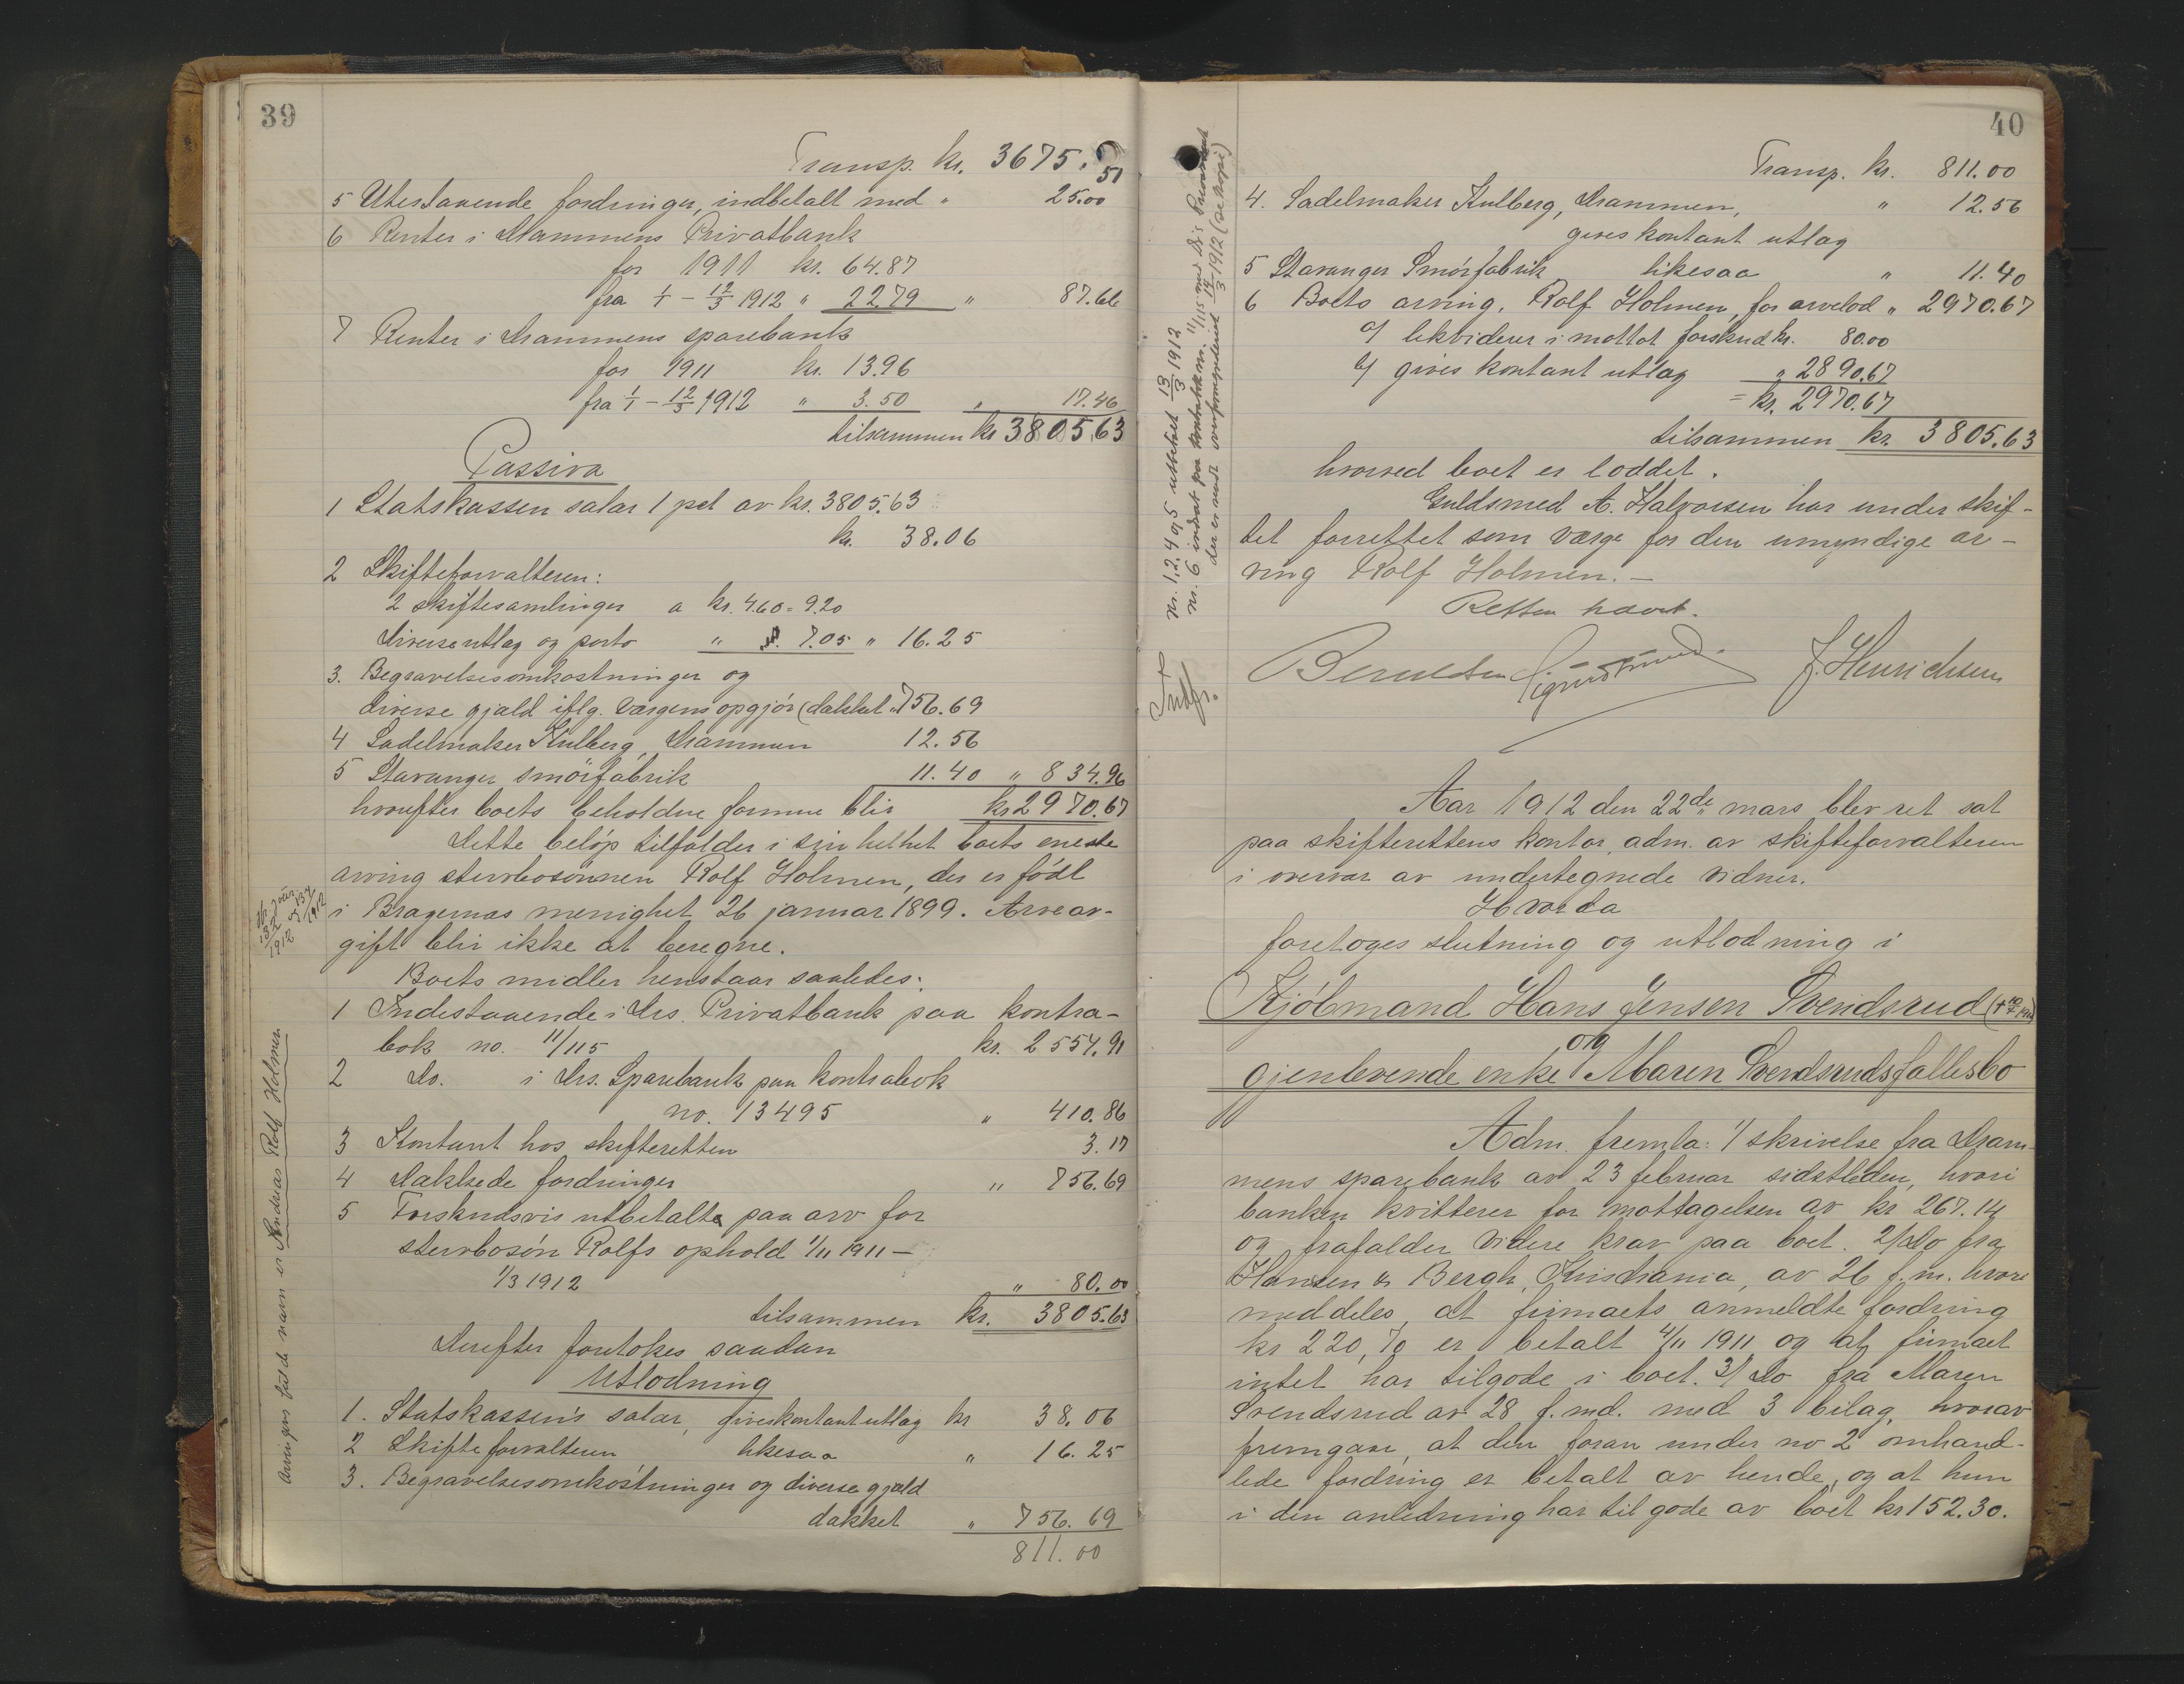 39
Transp. kr. 3675.51
5 Utestaaende fordringer, indbetalt med " 25.00
6 Renter i Drammens Privatbank
for 1911 kr. 64.87
fra 1/1 - 12/3 1912 " 22 79 " 87.66
7 Renter i Drammens sparebank
for 1911 kr. 13.96
fra 1/1 - 12/3 1912 " 3.50 " 17.46
tilsammen kr 3805,63
Passiva
1 Statskassen salær 1 pct av kr. 3805.63
kr. 38.06
2 Skifteforvalteren:
2 skiftesamlinger a kr. 4.60 = 9.20
Diverse utlæg og porto " 7.05 " 16.25
3. Begravelsesomkostninger og
diverse gjæld iflg. værgens opgjör (dækket " 756.69
4 Sadelmaker Kulberg, Drammen 12.56
5 Stavanger smörfabrik 11.40 " 834.96
hvorefter boets beholdne formue blir kr 2970.67
Dette belöp tilfalder i sin helhet boets eneste
arving stervbosönnen Rolf Holmen, der er födt
i Bragernæs menighet 26 januar 1899. Arveav-
gift blir ikke at beregne.
Boets midler henstaar saaledes:
1 Indestaaende i Drs. Privatbank paa kontra-
bok no. 11/115 kr. 2554.91
2 Do. i Drs. Sparebank paa kontrabok
no. 13495 " 410.86
3 Kontant hos skifteretten 3.17
4 Dækkede fordringer " 756.69
5 Forskudsvis utbetalte paa arv for
stervbosön Rolfs ophold 1/11 1911 -
1/3 1912 " 80.00
tilsammen kr. 3805.63
Derefter foretokes saadan
Utlodning
1. Statskassen's salær, gives kontant utlæg kr 38.06
2 Skifteforvalteren likesaa " 16.25
3. Begravelsesomkostninger og diverse gjæld
dækket " 756.69
811.00
Arvingens fulde navn er Andreas Rolf Holmen
40
Transp. kr. 811.00
4. Sadelmaker Kulberg, Drammen, " 12.56
gives kontant utlæg
5 Stavanger Smörfabrik likesaa " 11.40
6 Boets arving, Rolf Holmen, for arvelod " 2970.67
a/ likvideres i mottat forskud kr. 80.00
b/ gives kontant utlæg " 2890.67
= kr. 2970.67
tilsammen kr. 3805.63
hvorved boet er loddet.
Guldsmed A. Halvorsen har under skif-
tet forrettet som værge for den umyndige ar-
ving Rolf Holmen. -
Retten hævet.
Berentsen Sigurd J. Henrichsen
nr. 1, 2, 4 og 5 utbetalt 13/3 1912
nr. 6 indsat paa kontrabok nr. 11/115 med Dr's Privatbank
der er sendt overformynderiet 14/3 1912 (se kopi)
Indf.
Aar 1912 den 22de mars blev ret sat
paa skifterettens kontor, adm. av skifteforvalteren
i overvær av undertegnede vidner.
Hvorda
foretoges slutning og utlodning i
Kjöbmand Hans Jensen Svendsrud
og
gjenlevende enke Maren Svendsruds fællesbo
Adm. fremla: 1/ skrivelse fra Dram-
mens sparebank av 23 februar sidstleden, hvori
banken kvitterer for mottagelsen av kr 267.14
og frafalder videre krav paa boet. 2/ Do fra
Hansen & Bergh, Kristiania, av 26 f. m. hvori
meddeles, at firmaets anmeldte fordring
kr 220,70 er betalt 4/11 1911 og at firmaet
intet har tilgode i boet. 3/ Do fra Maren
Svendsrud av 28 f. md. med 3 bilag, hvorav
fremgaar, at den foran under no 2 omhand-
lede fordring er betalt av hende, og at hun
i den anledning har til gode av boet kr 152.30.